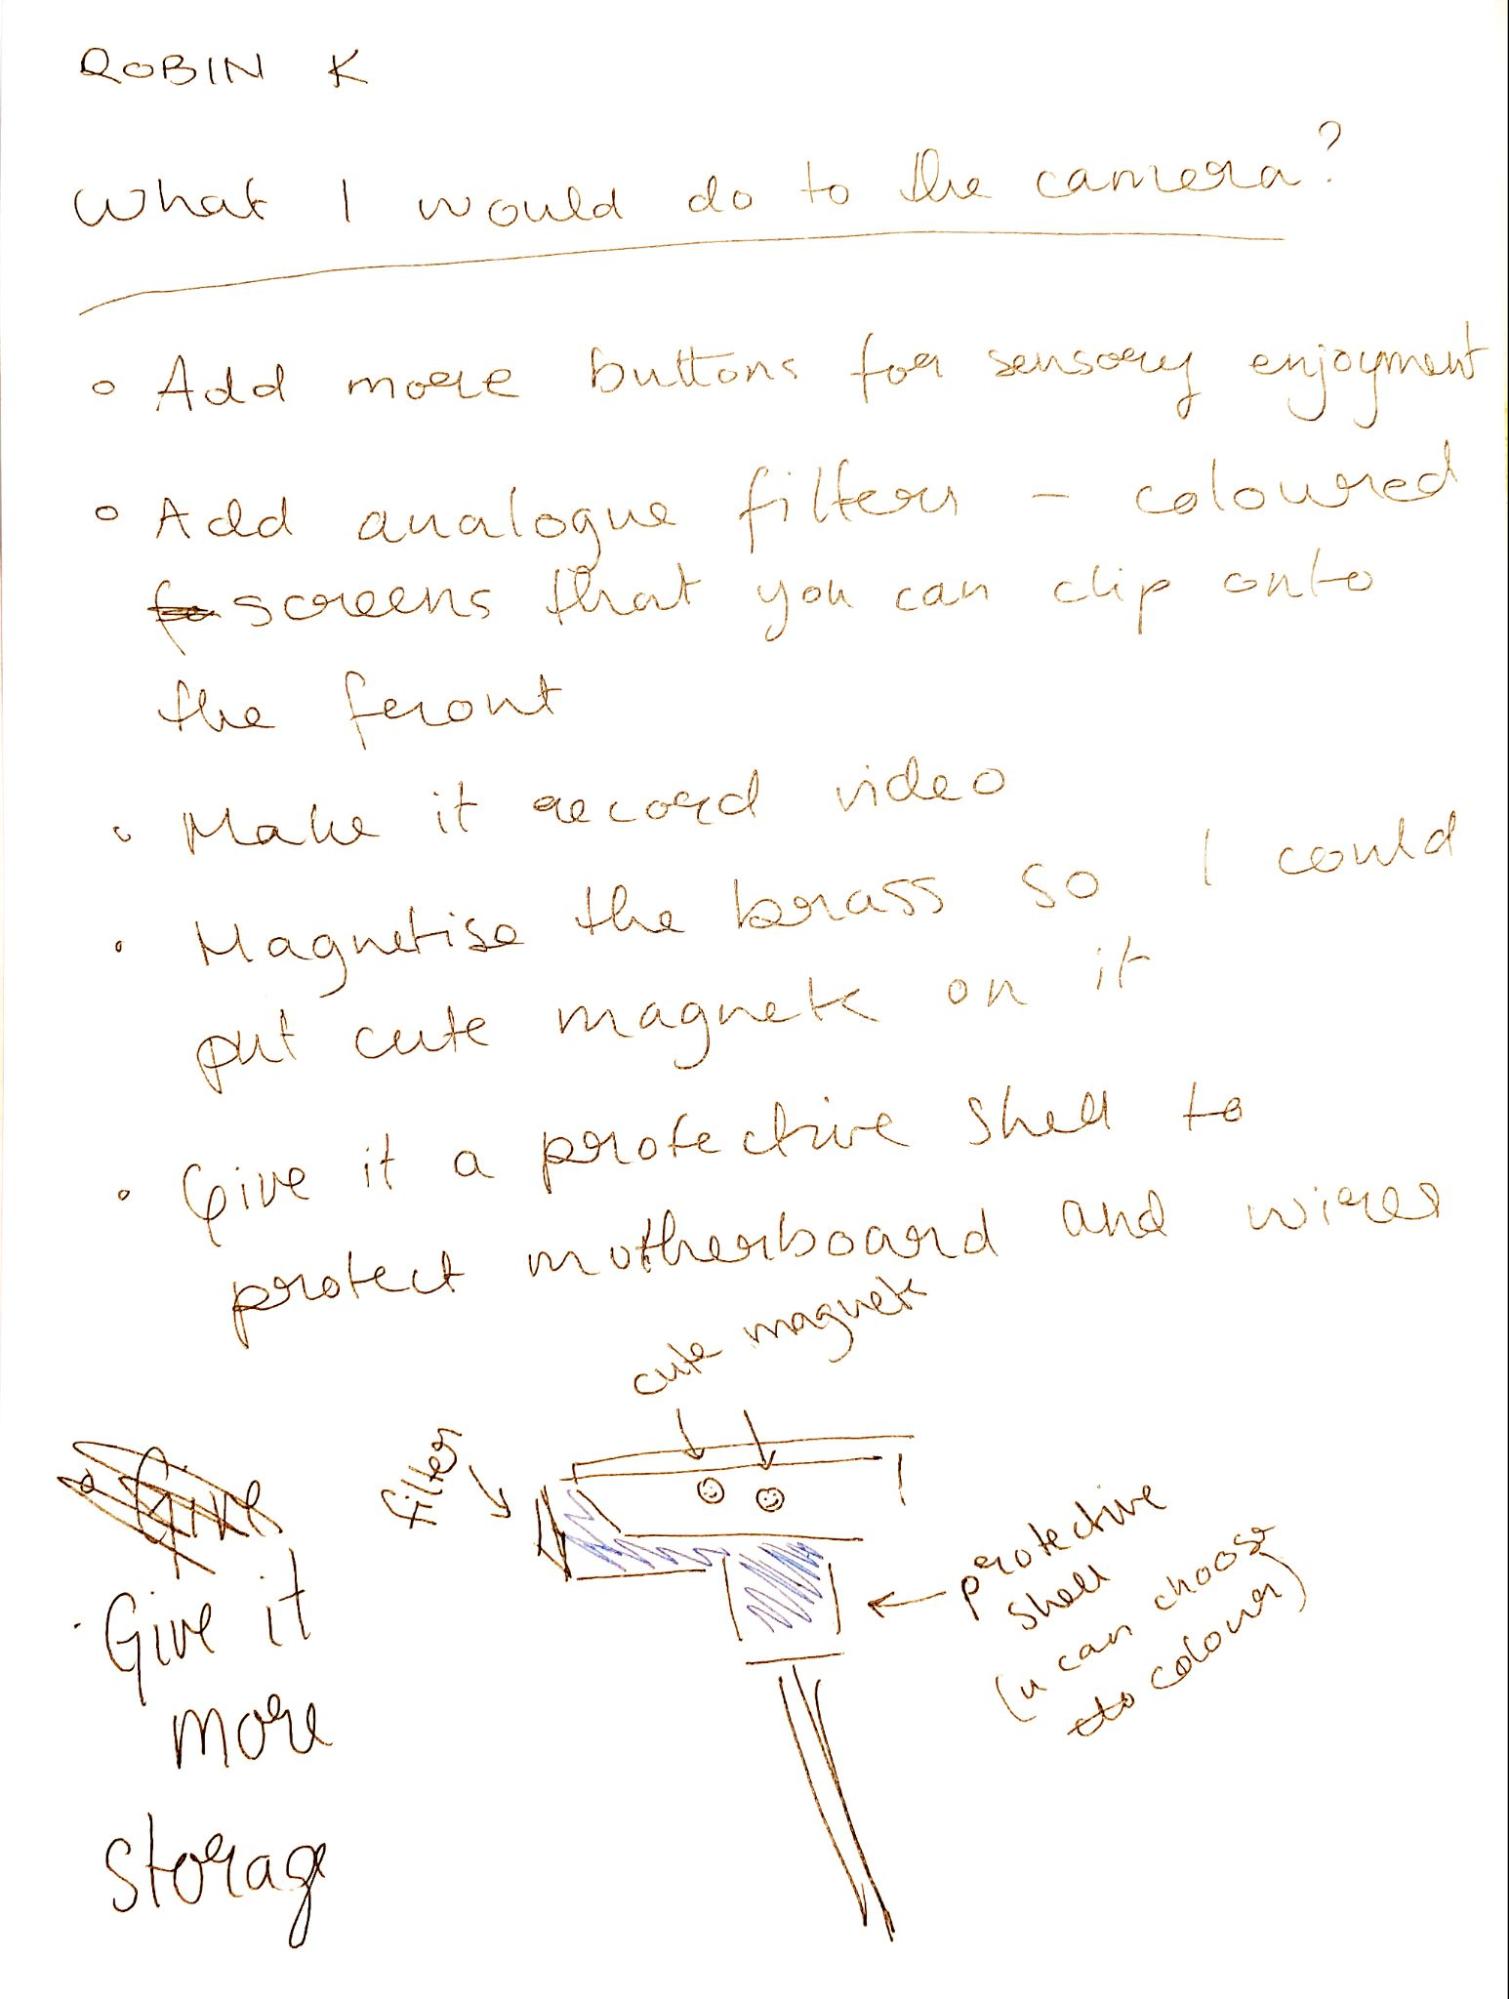 ROBIN K
What I would do to the camera?
◦ Add more buttons for sensory enjoyment
◦ Add analogue filters - coloured
screens that you can clip onto
the front
◦ Make it record video
◦ Magnetise the brass so I could
put cute magnets on it
◦ Give it a protective shell to
protect motherboard and wires
cute magnets
filter
protective
shell
(u can choose
colour)
Give
· Give it
more
storage